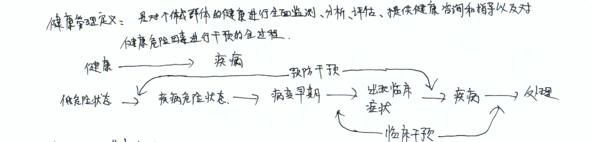 健康管理定义：是对个体或群体的健康进行全面监测、分析、评估、提供健康咨询和指导以及对
健康危险因素进行干预的全过程.
健康 → 疾病
预防干预
低危险状态 → 疾病危险状态 → 病变早期 → 出现临床症状 → 疾病 → 处理
临床干预